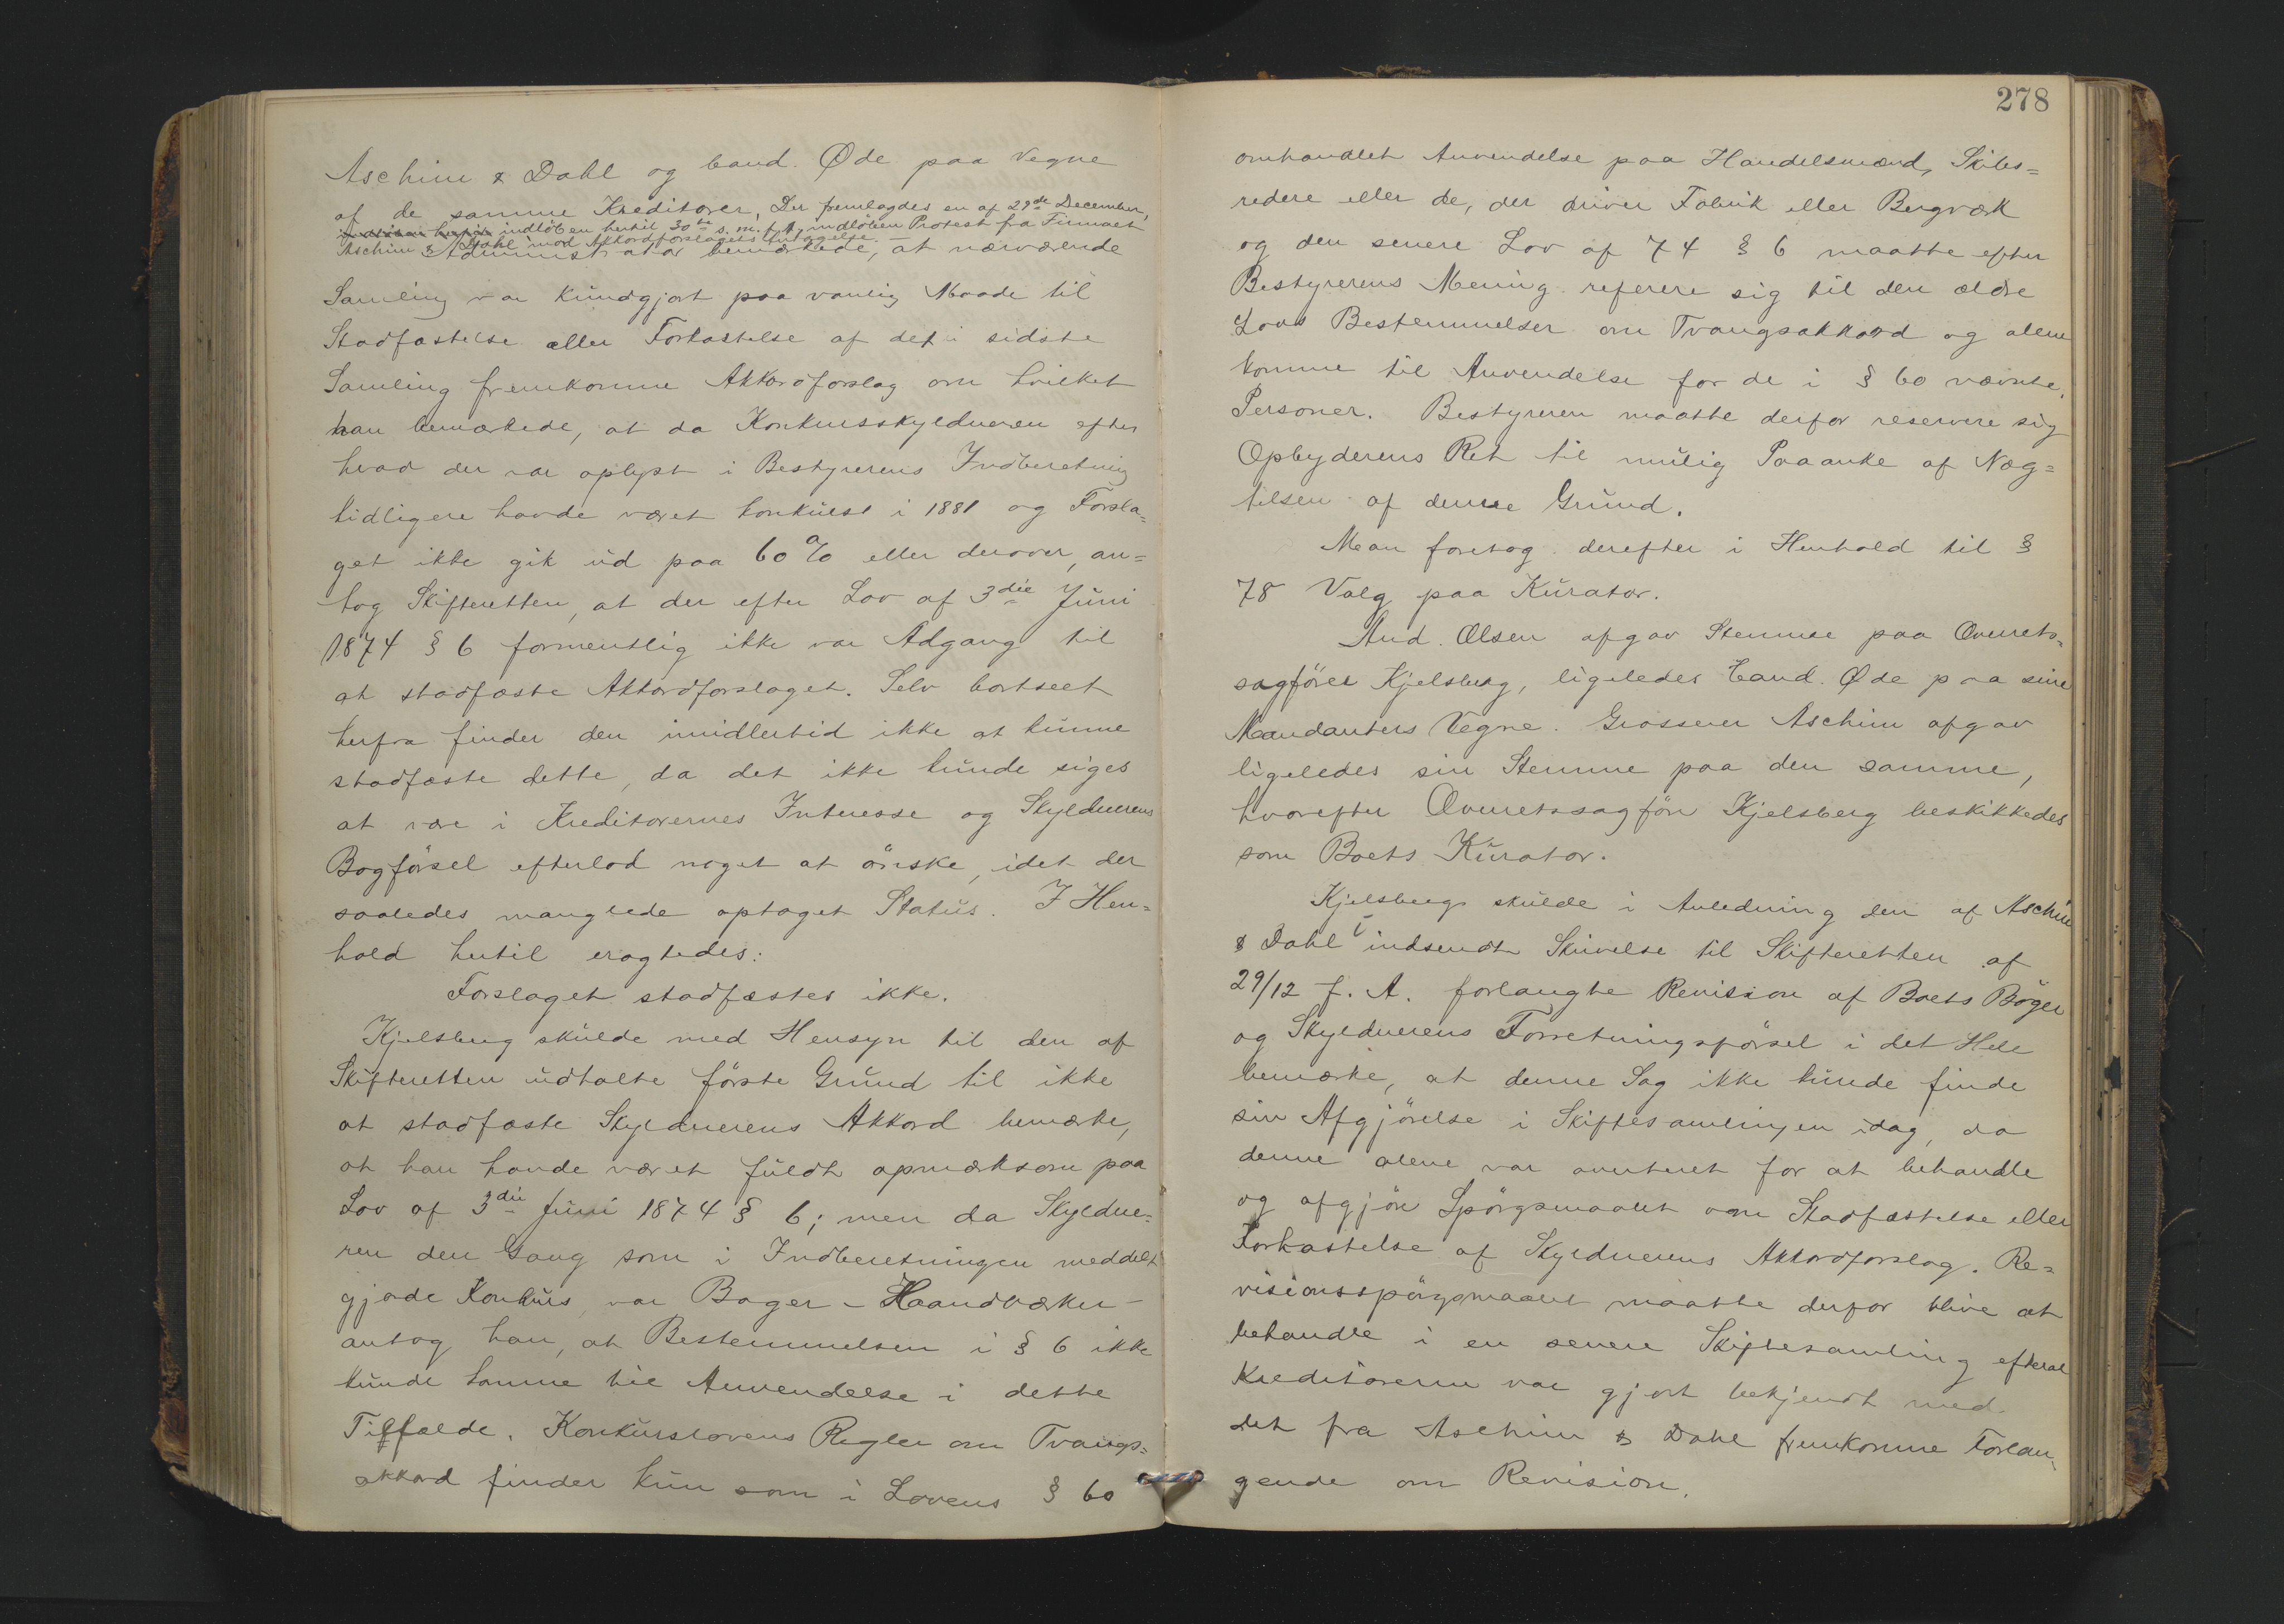 Aschim & Dahl og Cand. Øde paa Vegne
af de samme Kreditorer. Der fremlagdes en af 29de December,
indløben hertil 30te s. m. f. A. indløben Protest fra Firmaet
Aschim & Dahl mod Akkordforslagets Antagelse. —
Administrator bemærkede, at nærværende
Samling var kundgjort paa vanlig Maade til
Stadfæstelse eller Forkastelse af det i sidste
Samling fremkomne Akkordforslag om hvilket
han bemærkede, at da Konkursskyldneren efter
hvad der var oplyst i Bestyrerens Indberetning
tidligere havde været konkurs i 1881 og Forsla=
get ikke gik ud paa 60% eller derover, an=
tog Skifteretten, at der efter Lov af 3die Juni
1874 § 6 formentlig ikke var Adgang til
at stadfæste Akkordforslaget. Selv bortseet
herfra finder den imidlertid ikke at kunne
stadfæste dette, da det ikke kunde siges
at være i Kreditorernes Interesse og Skyldnerens
Bogførsel efterlod noget at ønske, idet der
saaledes manglede optaget Status. I Hen=
hold hertil eragtedes:
Forslaget stadfæstes ikke.
Kjelsberg skulde med Hensyn til den af
Skifteretten udtalte første Grund til ikke
at stadfæste Skyldnerens Akkord bemærke,
at han havde været fuldt opmærksom paa
Lov af 3die Juni 1874 § 6; men da Skyldne=
ren den Gang som i Indberetningen meddelt
gjorde Konkurs, var Bager - Haandværker -
antog han, at Bestemmelsen i § 6 ikke
kunde komme til Anvendelse i dette
Tilfælde. Konkurslovens Regler om Tvangs=
akkord finder kun som i Lovens § 60
278
omhandlet Anvendelse paa Handelsmænd, Skibs=
redere eller de, der driver Fabrik eller Bergværk
og den senere Lov af 74 § 6 maatte efter
Bestyrerens Mening referere sig til den ældre
Lovs Bestemmelser om Tvangsakkord og alene
komme til Anvendelse for de i § 60 nævnte
Personer. Bestyreren maatte derfor reservere sig
Opbyderens Ret til mulig Paaanke af Næg=
telsen af denne Grund.
Man foretog derefter i Henhold til §
78 Valg paa Kurator.
And. Olsen afgav Stemme paa Overrets=
sagfører Kjelsberg, ligeledes Cand. Øde paa sine
Mandanters Vegne. Grosserer Aschim afgav
ligeledes sin Stemme paa den samme,
hvorefter Overretssagfører Kjelsberg beskikkedes
som Boets Kurator.
Kjelsberg skulde i Anledning den af Aschim
& Dahl i indsendt Skrivelse til Skifteretten af
29/12 f. A. forlangte Revision af Boets Bøger
og Skyldnerens Forretningsførsel i det Hele
bemærke, at denne Sag ikke kunde finde
sin Afgjørelse i Skiftesamlingen idag, da
denne alene var averteret for at behandle
og afgjøre Spørgsmaalet om Stadfæstelse eller
Forkastelse af Skyldnerens Akkordforslag. Re=
visionsspørgsmaalet maatte derfor blive at
behandle i en senere Skiftesamling efterat
Kreditorerne var gjort bekjendt med
det fra Aschim & Dahl fremkomne Forlan=
gende om Revision.